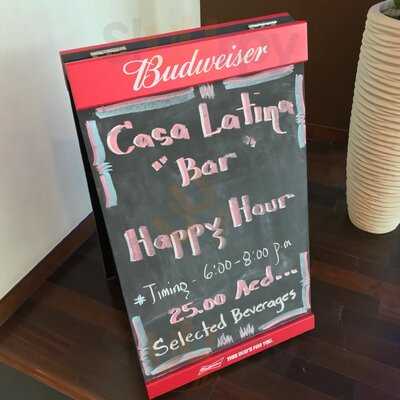 Budweiser
Casa Latina
"Bar"
Happy Hour
# Timing - 6:00-8:00 p.m
25.00 Aed...
Selected Beverages
Budweiser THIS BUD'S FOR YOU.